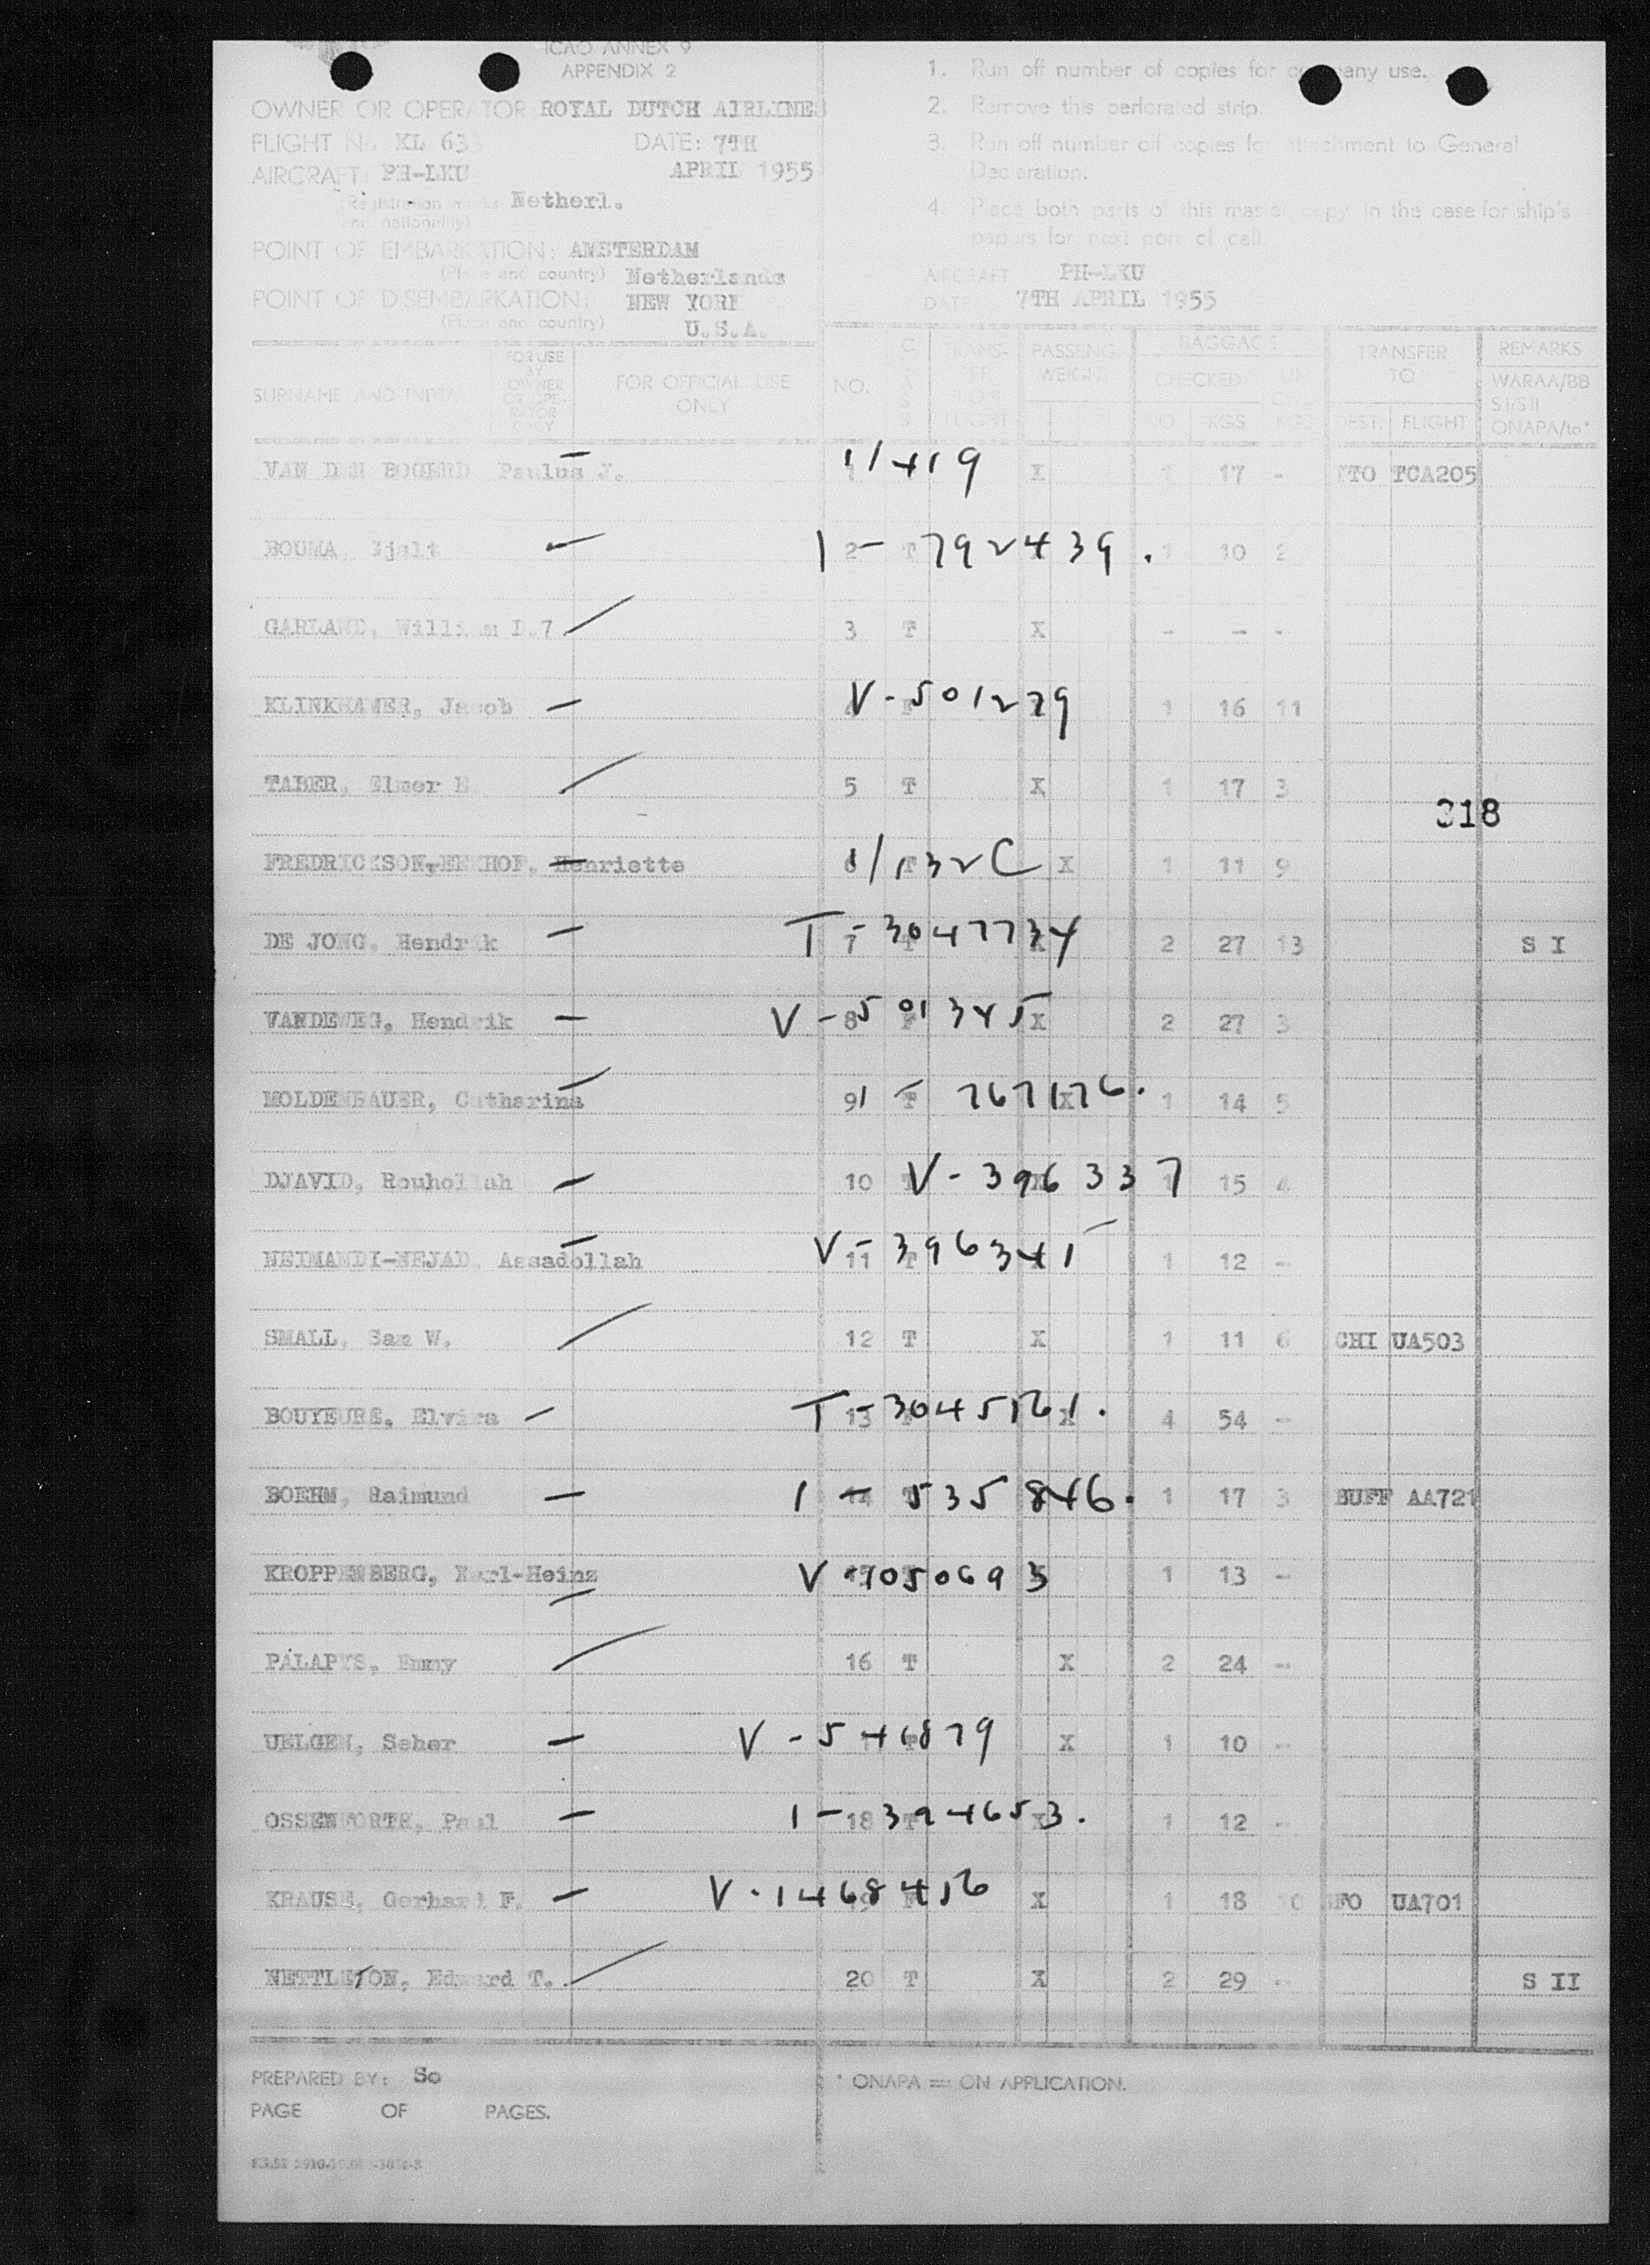 ICAO ANNEX 9
APPENDIX 2
OWNER OR OPERATOR ROYAL DUTCH AIRLINES
FLIGHT No. KL 633 DATE: 7TH
AIRCRAFT: PH-LKU APRIL 1955
(Registration marks Netherl.
and nationality)
POINT OF EMBARKATION: AMSTERDAM
(Place and country) Netherlands
POINT OF DISEMBARKATION: NEW YORK
(Place and country) U.S.A.
1. Run off number of copies for company use.
2. Remove this perforated strip.
3. Run off number off copies for attachment to General
Declaration.
4. Place both parts of this master copy in the case for ship's
papers for next port of call.
AIRCRAFT PH-LKU
DATE 7TH APRIL 1955
SURNAME AND INITIALS FOR USE BY OWNER OR OPERATOR ONLY FOR OFFICIAL USE ONLY NO. CLASS PASSENG. WEIGHT BAGGAGE CHECKED NO KGS KGS TRANSFER TO DEST. FLIGHT REMARKS WARAA/BB S I/S II ONAPA/to*
VAN DEN BOGERD Paulus J. — 11419 X 1 17 - TCA205
BOUMA, Sjalt — 1-792439. 2 T 1 10 2
GARLAND, William D.7 / 3 T X - - -
KLINKHAMER, Jacob — V-501279 1 16 11
TABER, Elmer E. / 5 T X 1 17 3
318
FREDRICKSON-EEKHOF, Henriette — 1/132C X 1 11 9
DE JONG, Hendrik — 7 T-3047734 2 27 13 S I
VANDEWEG, Hendrik — 8 V-501345 X 2 27 3
MOLDENHAUER, Catharina — 9 1-767176. X 1 14 5
DJAVID, Rouhollah — 10 V-396337 1 15 4
NEIMANDI-NEJAD, Assadollah — 11 V-396345 1 12 -
SMALL, Sam W. / 12 T X 1 11 6 CHI UA503
BOUYEURE, Elvira — 13 T-3045161. X 4 54 -
BOEHM, Raimund — 14 1-535846. 1 17 3 BUFF AA721
KROPPENBERG, Karl-Heinz — V-1050693 1 13 -
PALAPYS, Emmy / 16 T X 2 24 -
UELGEN, Seher — V-546879 X 1 10 -
OSSENFORTH, Paul — 18 1-394653. X 1 12 -
KRAUSE, Gerhard F. — V-1468416 X 1 18 10 SFO UA701
NETTLETON, Edward T. / 20 T X 2 29 - S II
PREPARED BY: So
PAGE OF PAGES.
* ONAPA = ON APPLICATION.